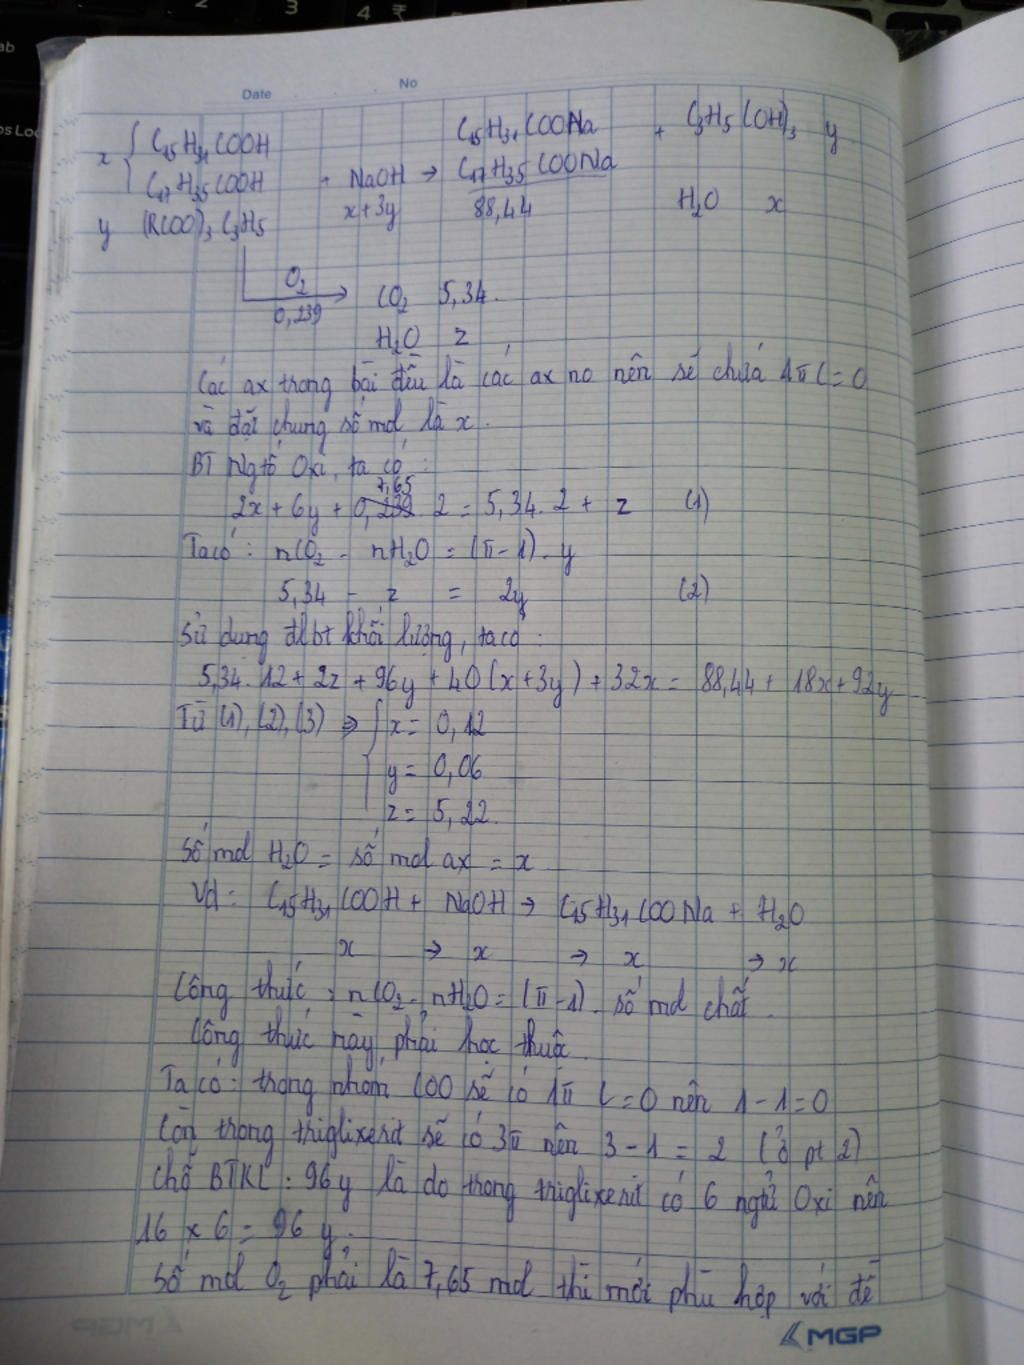 Date
No
C₁₅H₃₁COOH C₁₅H₃₁COONa + C₃H₅(OH)₃ y
x { C₁₇H₃₅COOH + NaOH → C₁₇H₃₅COONa
y (RCOO)₃C₃H₅ x+3y 88,44 H₂O x
O₂
0,239
CO₂ 5,34.
H₂O z
Các ax trong bài đều là các ax no nên sẽ chứa 1π C=O
và đặt chung số mol là x.
BT Ngtố Oxi, ta có:
7,65
2x + 6y + 0,239. 2 = 5,34. 2 + z (1)
Ta có: nCO₂ - nH₂O = (π-1). y
5,34 - z = 2y (2)
Sử dụng đlbt khối lượng, ta có:
5,34. 12 + 2z + 96y + 40(x+3y) + 32x = 88,44 + 18x + 92y
Từ (1), (2), (3) ⇒ { x = 0,12
y = 0,06
z = 5,22.
Số mol H₂O = số mol ax = x
Vd: C₁₅H₃₁COOH + NaOH → C₁₅H₃₁COONa + H₂O
x → x → x → x
Công thức: nCO₂ - nH₂O = (π-1). số mol chất.
Công thức này phải học thuộc.
Ta có: trong nhóm COO sẽ có 1π C=O nên 1-1=0
Còn trong triglixerit sẽ có 3π nên 3-1 = 2 (ở pt 2)
Chỗ BTKL: 96y là do trong triglixerit có 6 ngtử Oxi nên
16 x 6 = 96 y.
Số mol O₂ phải là 7,65 mol thì mới phù hợp với đề
MGP
MGP